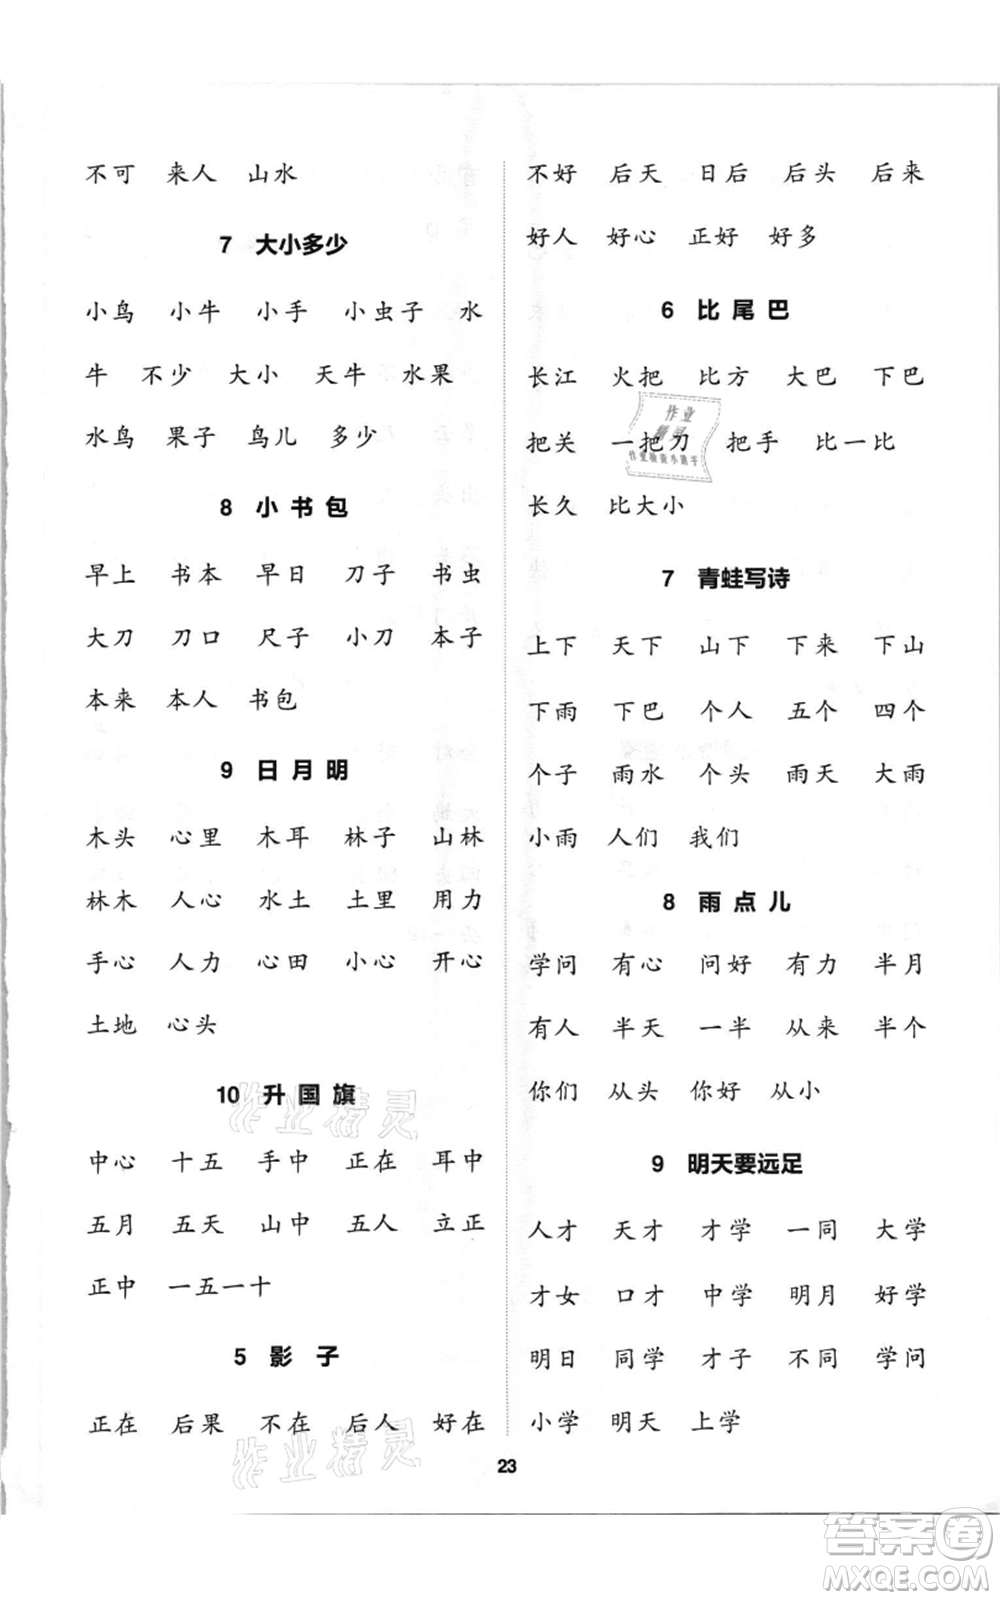 不可 来人 山水
7 大小多少
小鸟 小牛 小手 小虫子 水
牛 不少 大小 天牛 水果
水鸟 果子 鸟儿 多少
8 小书包
早上 书本 早日 刀子 书虫
大刀 刀口 尺子 小刀 本子
本来 本人 书包
9 日月明
木头 心里 木耳 林子 山林
林木 人心 水土 土里 用力
手心 人力 心田 小心 开心
土地 心头
10 升国旗
中心 十五 手中 正在 耳中
五月 五天 山中 五人 立正
正中 一五一十
5 影子
正在 后果 不在 后人 好在
不好 后天 日后 后头 后来
好人 好心 正好 好多
6 比尾巴
长江 火把 比方 大巴 下巴
把关 一把刀 把手 比一比
长久 比大小
7 青蛙写诗
上下 天下 山下 下来 下山
下雨 下巴 个人 五个 四个
个子 雨水 个头 雨天 大雨
小雨 人们 我们
8 雨点儿
学问 有心 问好 有力 半月
有人 半天 一半 从来 半个
你们 从头 你好 从小
9 明天要远足
人才 天才 才学 一同 大学
才女 口才 中学 明月 好学
明日 同学 才子 不同 学问
小学 明天 上学
23
作业
精灵
作业检查小助手
作业精灵
作业精灵
答案圈
MXQE.COM